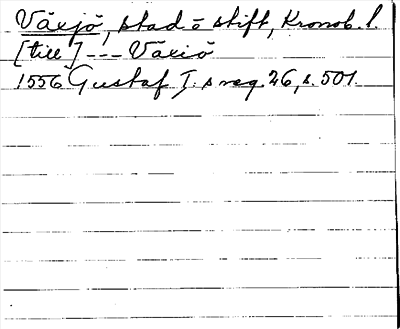 Växjö, stad o stift, Kronob. l.
[till] --- Växiö
1556 Gustaf I:s reg. 26, s. 501.